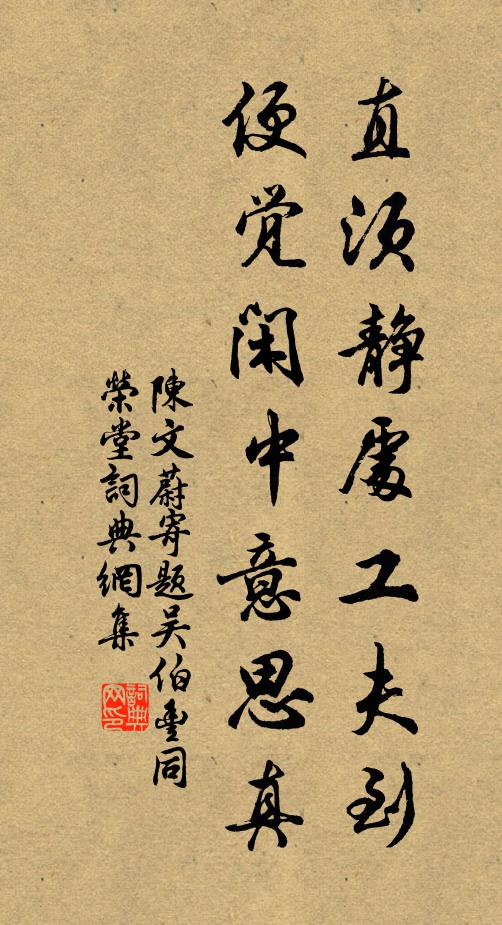 直须静處工夫到
便觉闲中意思真
陳文蔚寄题吴伯豐同
榮堂詞典網集
詞典网印